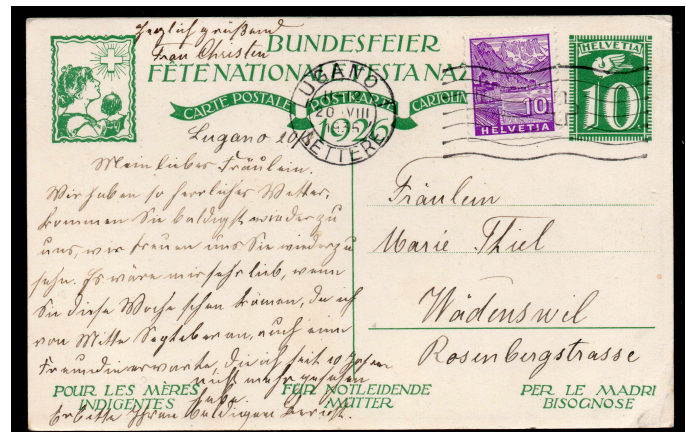 Herzlich grüßend
Frau Christen
BUNDESFEIER
FÊTE NATIONALE FESTA NAZ
CARTE POSTALE POSTKARTE CARTOLIN
1926
LUGANO
20 VIII
LETTERE
10
HELVETIA
HELVETIA
10
Lugano 20
Mein liebes Fräulein.
Wir haben so herrliches Wetter,
kommen Sie baldigst wieder zu
uns, wir freuen uns Sie wieder zu
sehn. Es wäre mir sehr lieb, wenn
Sie diese Woche schon kämen, da ich
von Mitte September an, auch eine
Freundin erwarte, die ich seit 10 Jahren
nicht mehr gesehen
habe.
Erbitte Ihren baldigen Bericht.
Fräulein
Marie Thiel
Wädenswil
Rosenbergstrasse
POUR LES MÈRES
INDIGENTES
FÜR NOTLEIDENDE
MÜTTER
PER LE MADRI
BISOGNOSE